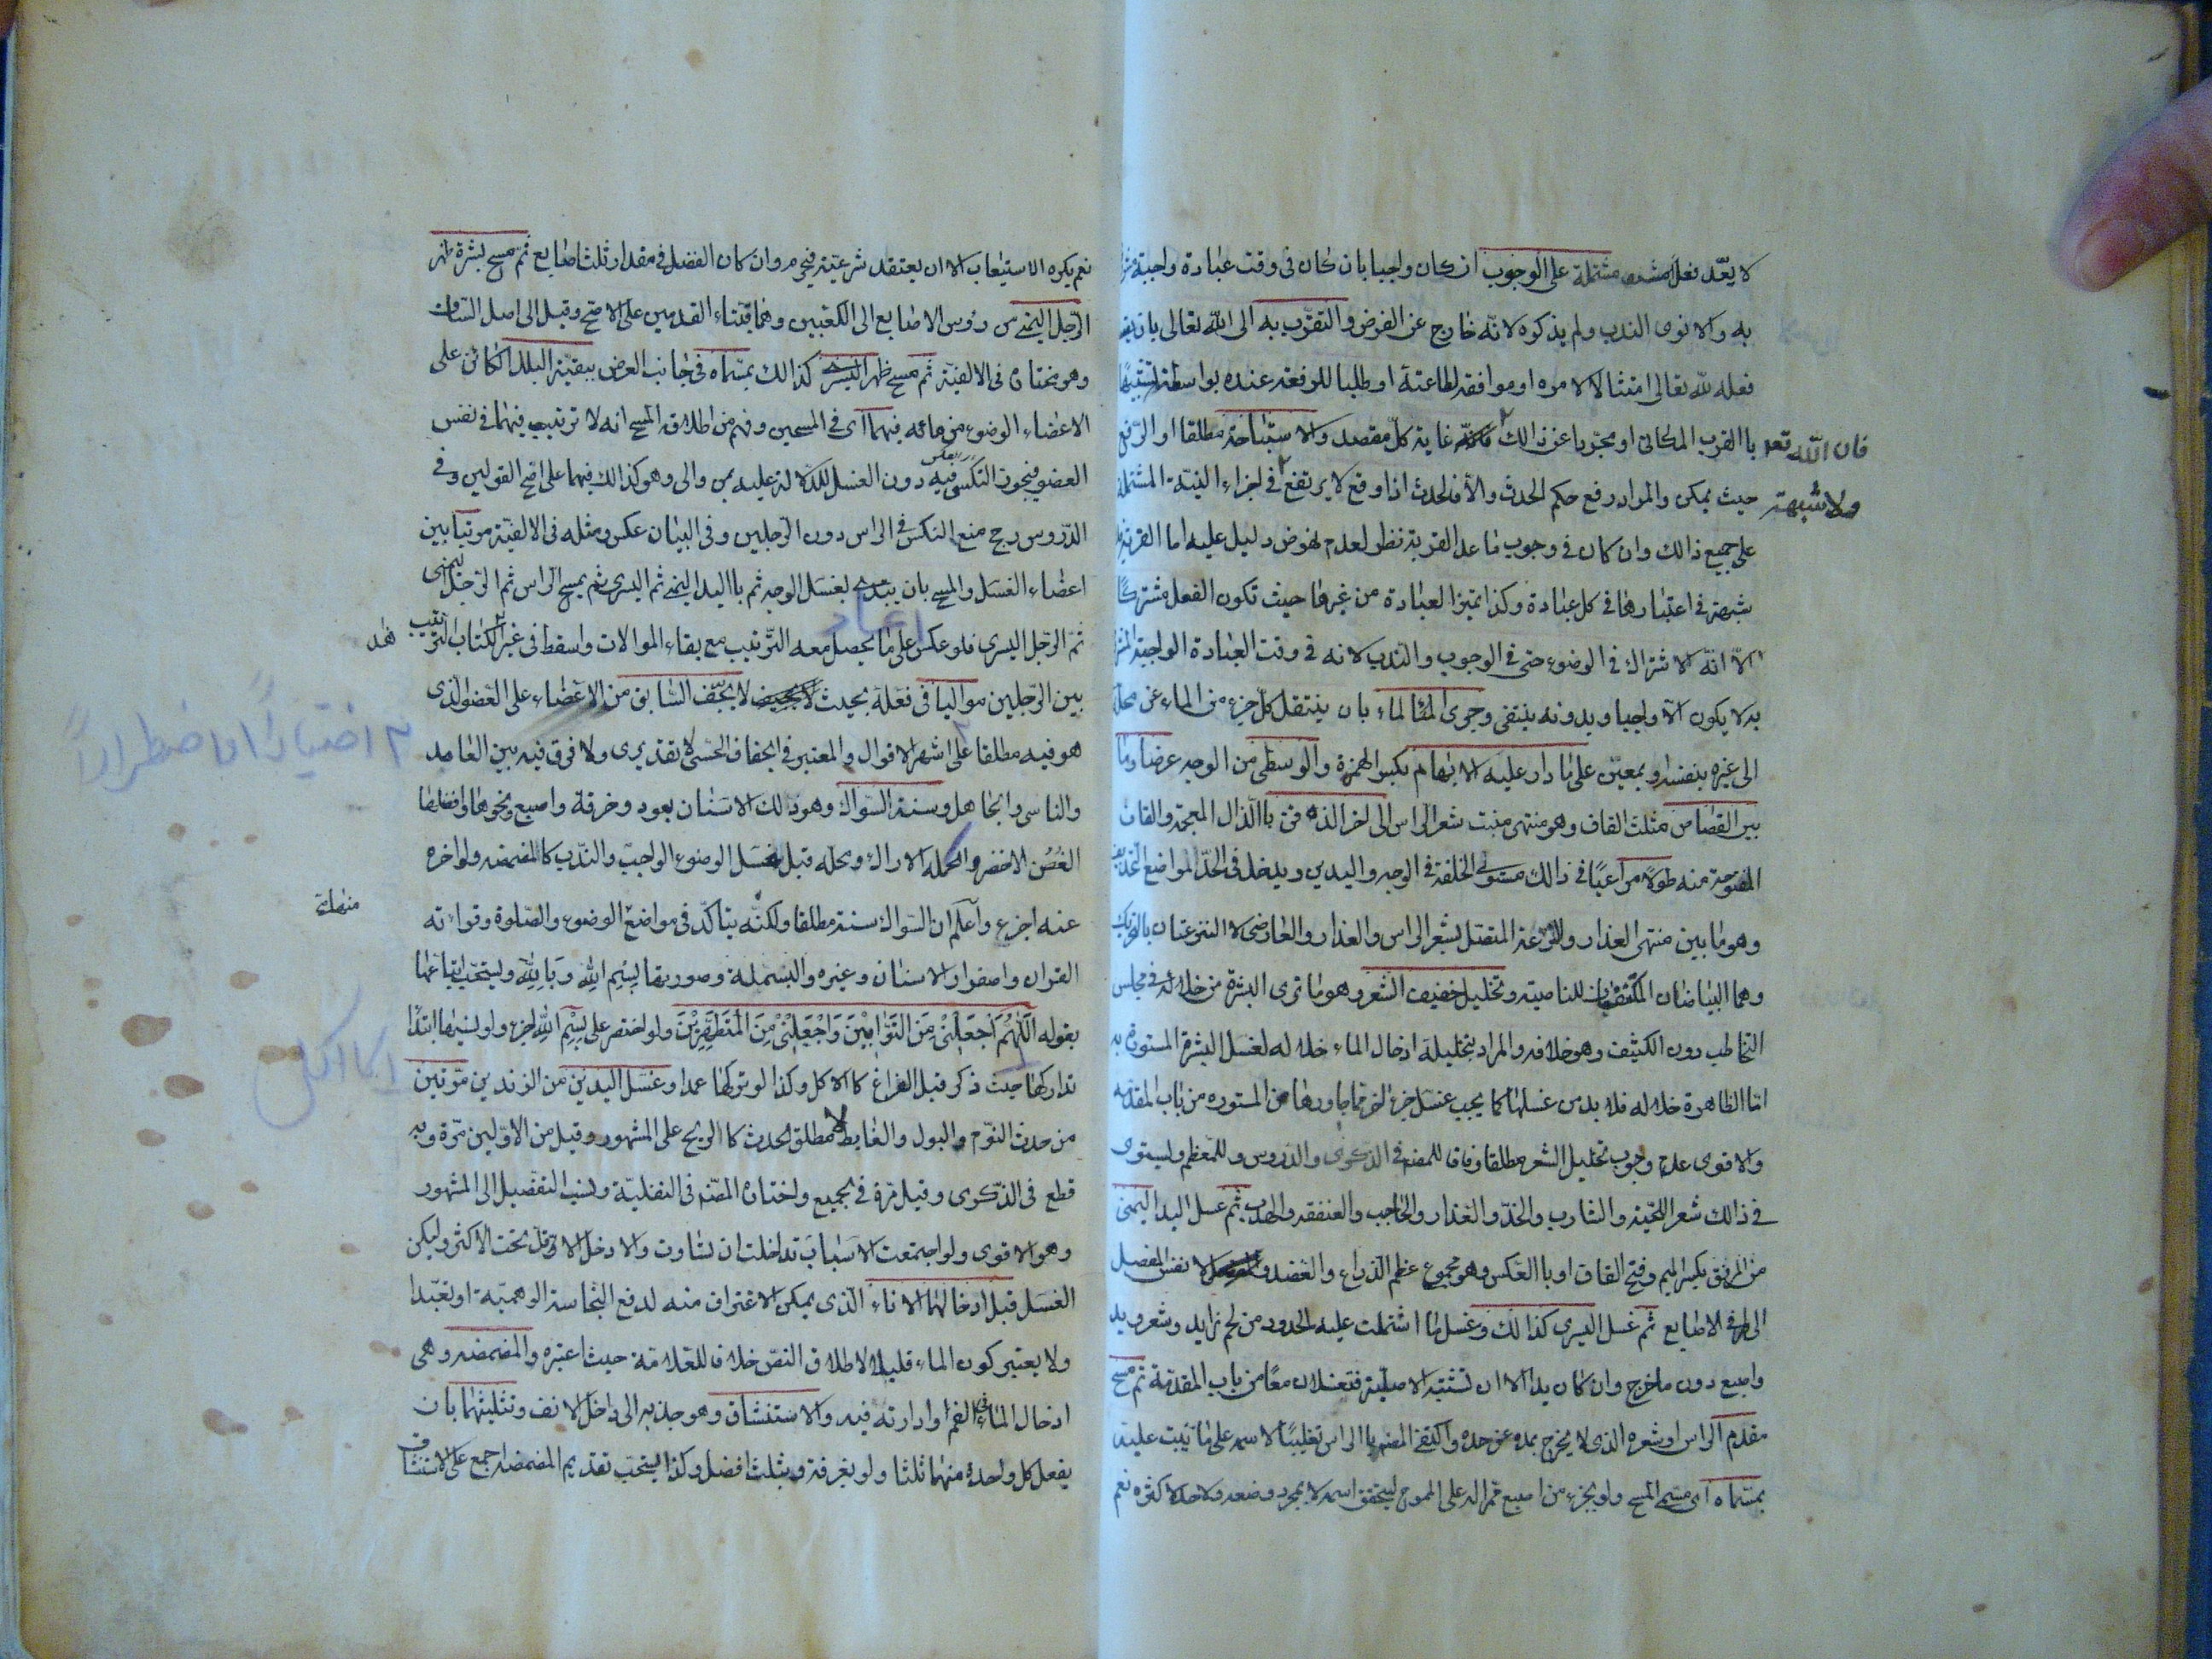 لا يعدّ فعلا مشتملة على الوجوب ان كان واجبا بان كان فى وقت عبادة واجبة
به والا نوى الندب ولم يذكره لانّه خارج عن الفرض والتقرّب به الى الله تعالى بان
فعله لله تعالى امتثالا لامره او موافقة لطاعته او طلبا للرفعة عنده بواسطة
باالقرب المكانى او مجرّدا عن ذالك فانّه غاية كلّ مقصد والاستباحة مطلقا او الرّفع
فان الله تعـ
حيث يمكن والمراد رفع حكم الحدث والا فالحدث اذا وقع لا يرتفع فى اجزاء النيّة المشتملة
ولا شبهة
على جميع ذالك وان كان فى وجوب ما عدا القربة نظر لعدم نهوض دليل عليه اما القربة فلا
شبهة فى اعتبارها فى كل عبادة وكذا تميز العبادة من غيرها حيث تكون الفعل مشتركا
الّا انّه لا اشتراك فى الوضوء حتى فى الوجوب والنّدب لانه فى وقت العبادة الواجبة
به لا يكون الّا واجبا وبدونه ينتفى وجرى الماء بان ينتقل كلّ جزء من الماء عن محله
الى غيره بنفسه او بمعيّن على ما دار عليه الابهام بكسر الهمزة والوسطى من الوجه عرضا وما
بين القصاص مثلث القاف وهو منتهى منبت شعر الراس الى اخر الذقن باالذال المعجمة والقاف
المفتوحة منه طولا مراعيًا فى ذالك مستوى الخلقة فى الوجه واليدين ويدخل فى الحدّ المواضع التحذيف
وهو ما بين منتهى العذار والنزعة المتصل بشعر الراس والعذار والعارض لا النزعتان بالتحريك
وهما البياضان المكتنفان للناصية وتخليل خفيف الشعر وهو ما ترى البشرة من خلاله فى مجلس
التخاطب دون الكثيف وهو خلافه والمراد بتخليله ادخال الماء خلاله لغسل البشرة المستورة به
امّا الظاهرة خلاله فلا بد من غسلها كما يجب غسل جزء اخر مما جاورها من المستوره من باب المقدّمه
والاقوى عدم وجوب تخليل الشعر مطلقا وفاقا للمصنه فى الذكرى والدّروس وللمعظم ويستوى
فى ذالك شعر اللحية والشارب والخدّ والعذار والحاجب والعنفقه والهدب ثم غسل اليد اليمنى
من المرفق بكسر الميم وفتح القاف او باالعكس وهو مجموع عظم الذراع والعضد لا نفس المفصل
الى اطراف الاصابع ثم غسل اليسرى كذالك وغسل ما اشتملت عليه الحدود من لحم زايد وشعر ويد
واصبع دون ما خرج وان كان يدا الا ان تشتبه الاصلية فتغسلان معًا من باب المقدمة ثم مسح
مقدم الراس او شعره الذى لا يخرج بمده عن حده واكتفى المصنه باالراس تغليبًا لاسمه على ما نبت عليه
بمسمّاه اى مسمّى المسح ولو بجزء من اصبع ممرا له على الممسوح ليتحقق اسمه لا بمجرد وضعه ولا حدّ لاكثره نعم
نعم يكره الاستيعاب الا ان يعتقد شرعيّته فيحرم وان كان الفضل فى مقدار ثلث اصابع ثمّ مسح بشرة ظهر
الرّجل اليمنى من رؤس الاصابع الى الكعبين وهما قبّتاء القدمين على الاصح وقيل الى اصل السّاق
وهو مختاره فى الالفيّة ثم مسح ظهر اليسرى كذالك بمسمّاه فى جانب العرض ببقيّة البلل الكائن على
الاعضاء الوضوء من مائه فيهما اى فى المسحين وفهم من اطلاق المسح انه لا ترتيب فيهما فى نفس
العضو فيجوز النّكس فيه دون الغسل للدّلالة عليه بمن والى وهو كذالك فيهما على اصّح القولين وفى
الدّروس رجّح منع النكس فى الراس دون الرّجلين وفى البيان عكس ومثله فى الالفيّة مرتبا بين
اعضاء الغسل والمسح بان يبتدئ بغسل الوجه ثم باليد اليمنى ثم اليسرى ثم يمسح الراس ثم الرّجل اليمنى
ثمّ الرّجل اليسرى فلو عكس على ما يحصل معه التّرتيب مع بقاء الموالات واسقط فى غير الكتاب التّرتيب
بين الرّجلين مواليا فى فعله بحيث لا يجّف السّابق من الاعضاء على العضو الّذى
٢ اختياراً او اضطراراً
هو فيه مطلقا على اشهر الاقوال والمعتبر فى الجفاف الحسّى لا تقديرى ولا فرق فيه بين العامد
والناسى والجاهل وسنته السّواك وهو ذلك الاسنان بعود وخرقة واصبع ونحوها وافضلها
الغصن الاخضر واكمله الاراك ومحلّه قبل غسل الوضوء الواجب والنّدب كالمضمضه ولو اخره
عنه اجزء واعلم ان السّواك سنة مطلقا ولكنّه يتاكّد فى مواضع الوضوء والصّلوة وقرائه
منها
القران واصفرار الاسنان وغيره والبسملة وصورتها بسم الله وبالله ويستحب اتباعها
بقوله اللّهم اجعلنى من التوّابين واجعلنى من المتطهّرين ولو اختصر على بسم الله اجزء ولو نسيها ابتدًا
تداركها حيث ذكر قبل الفراغ كالاكل وكذا لو تركها عمدا وغسل اليدين من الزندين مرّتين
من حدث النوّم والبول والغايط لا مطلق الحدث كاالريح على المشهور وقيل من الاوّلين مرّة وبه
قطع فى الذّكرى وقيل مرّة فى الجميع واختاره المصّنه فى النفليّة ونسب التفضيل الى المشهور
وهو الاقوى ولو اجتمعت الاسباب تداخلت ان تساوت والا دخل الاوقل تحت الاكثر وليكن
الغسل قبل ادخالهما الاناء الّذى يمكن الاغتراف منه لدفع النّجاسة الوهميّة او تعبّدا
ولا يعتبر كون الماء قليلا لاطلاق النصّ خلافا للعّلامّة حيث اعتبره والمضمضه وهى
ادخال الماء فى الفم او ادارته فيه والاستنشاق وهو جذبه الى داخل الانف وتثليثهما بان
يفعل كل واحدة منهما ثلثا ولو بغرفة وبثلث افضل وكذا يستحّب تقديم المضمضه اجمع على الاستنشاق